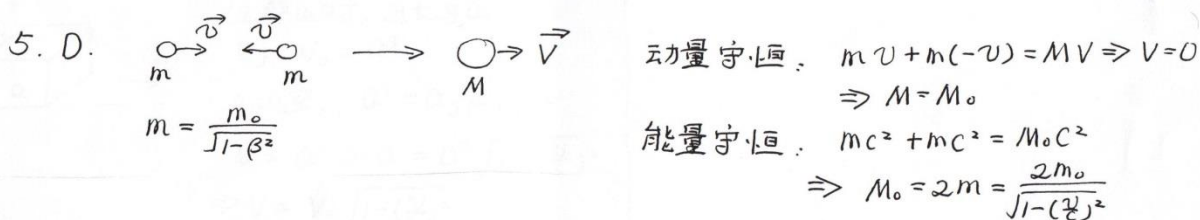 5. D. v⃗ v⃗ → V⃗
m m M
m = m₀/√(1-β²)
动量守恒: mv+m(-v)=MV ⇒ V=0
⇒ M=M₀
能量守恒: mc²+mc²=M₀c²
⇒ M₀=2m=2m₀/√(1-(v/c)²)